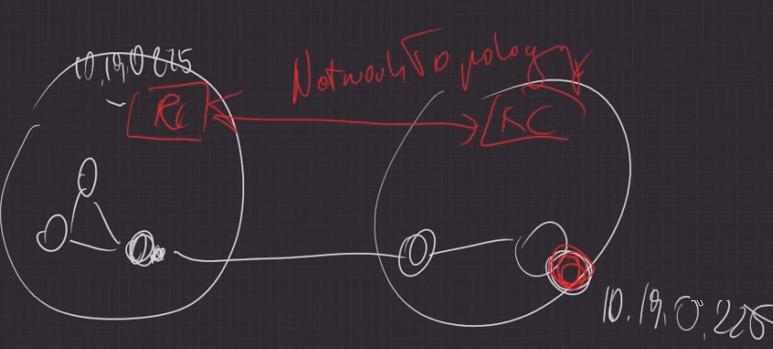 10.19.0.225
Network Topology
RC
RC
10.19.0.226